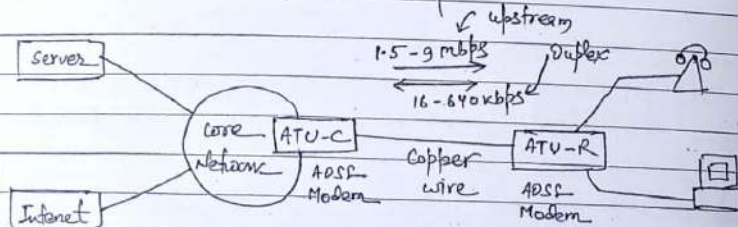 upstream
1.5 - 9 mbps
Duplex
16 - 640 kbps
Server
Core
Network
ATU-C
ADSL
Modem
Copper
wire
ATU-R
ADSL
Modem
Internet